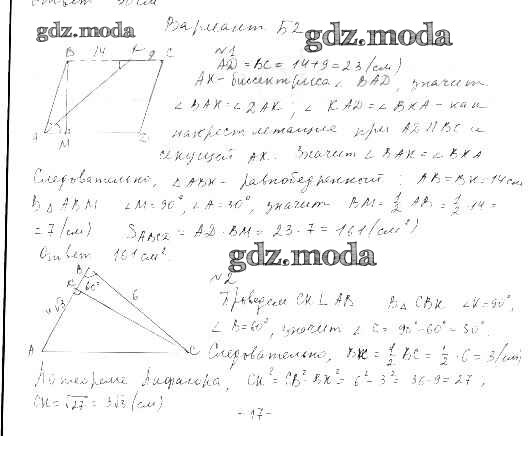 ответ 30 см
Вариант Б2
gdz.moda
gdz.moda
№1
B 14 K 9 C
AD = BC = 14+9 = 23 (см)
AK - биссектриса ∠ BAD, значит
∠ BAK = ∠ DAK ; ∠ KAD = ∠ BKA - как
накрест лежащие при AD || BC и
A M D
секущей AK. Значит ∠ BAK = ∠ BKA
Следовательно, △ ABK - равнобедренный : AB = BK = 14 см
В △ ABM ∠M = 90°, ∠A = 30°, значит BM = 1/2 AB = 1/2 · 14 =
= 7 (см) SABCD = AD · BM = 23 · 7 = 161 (см²)
Ответ 161 см².
gdz.moda
№2
B
K 60° 6
4√3
A C
Проведем CK ⊥ AB В △ CBK ∠K = 90°,
∠ B = 60°, значит ∠ C = 90° - 60° = 30°.
Следовательно, BK = 1/2 BC = 1/2 · 6 = 3 (см)
По теореме Пифагора, CK² = CB² - BK² = 6² - 3² = 36 - 9 = 27 ;
CK = √27 = 3√3 (см)
- 17 -